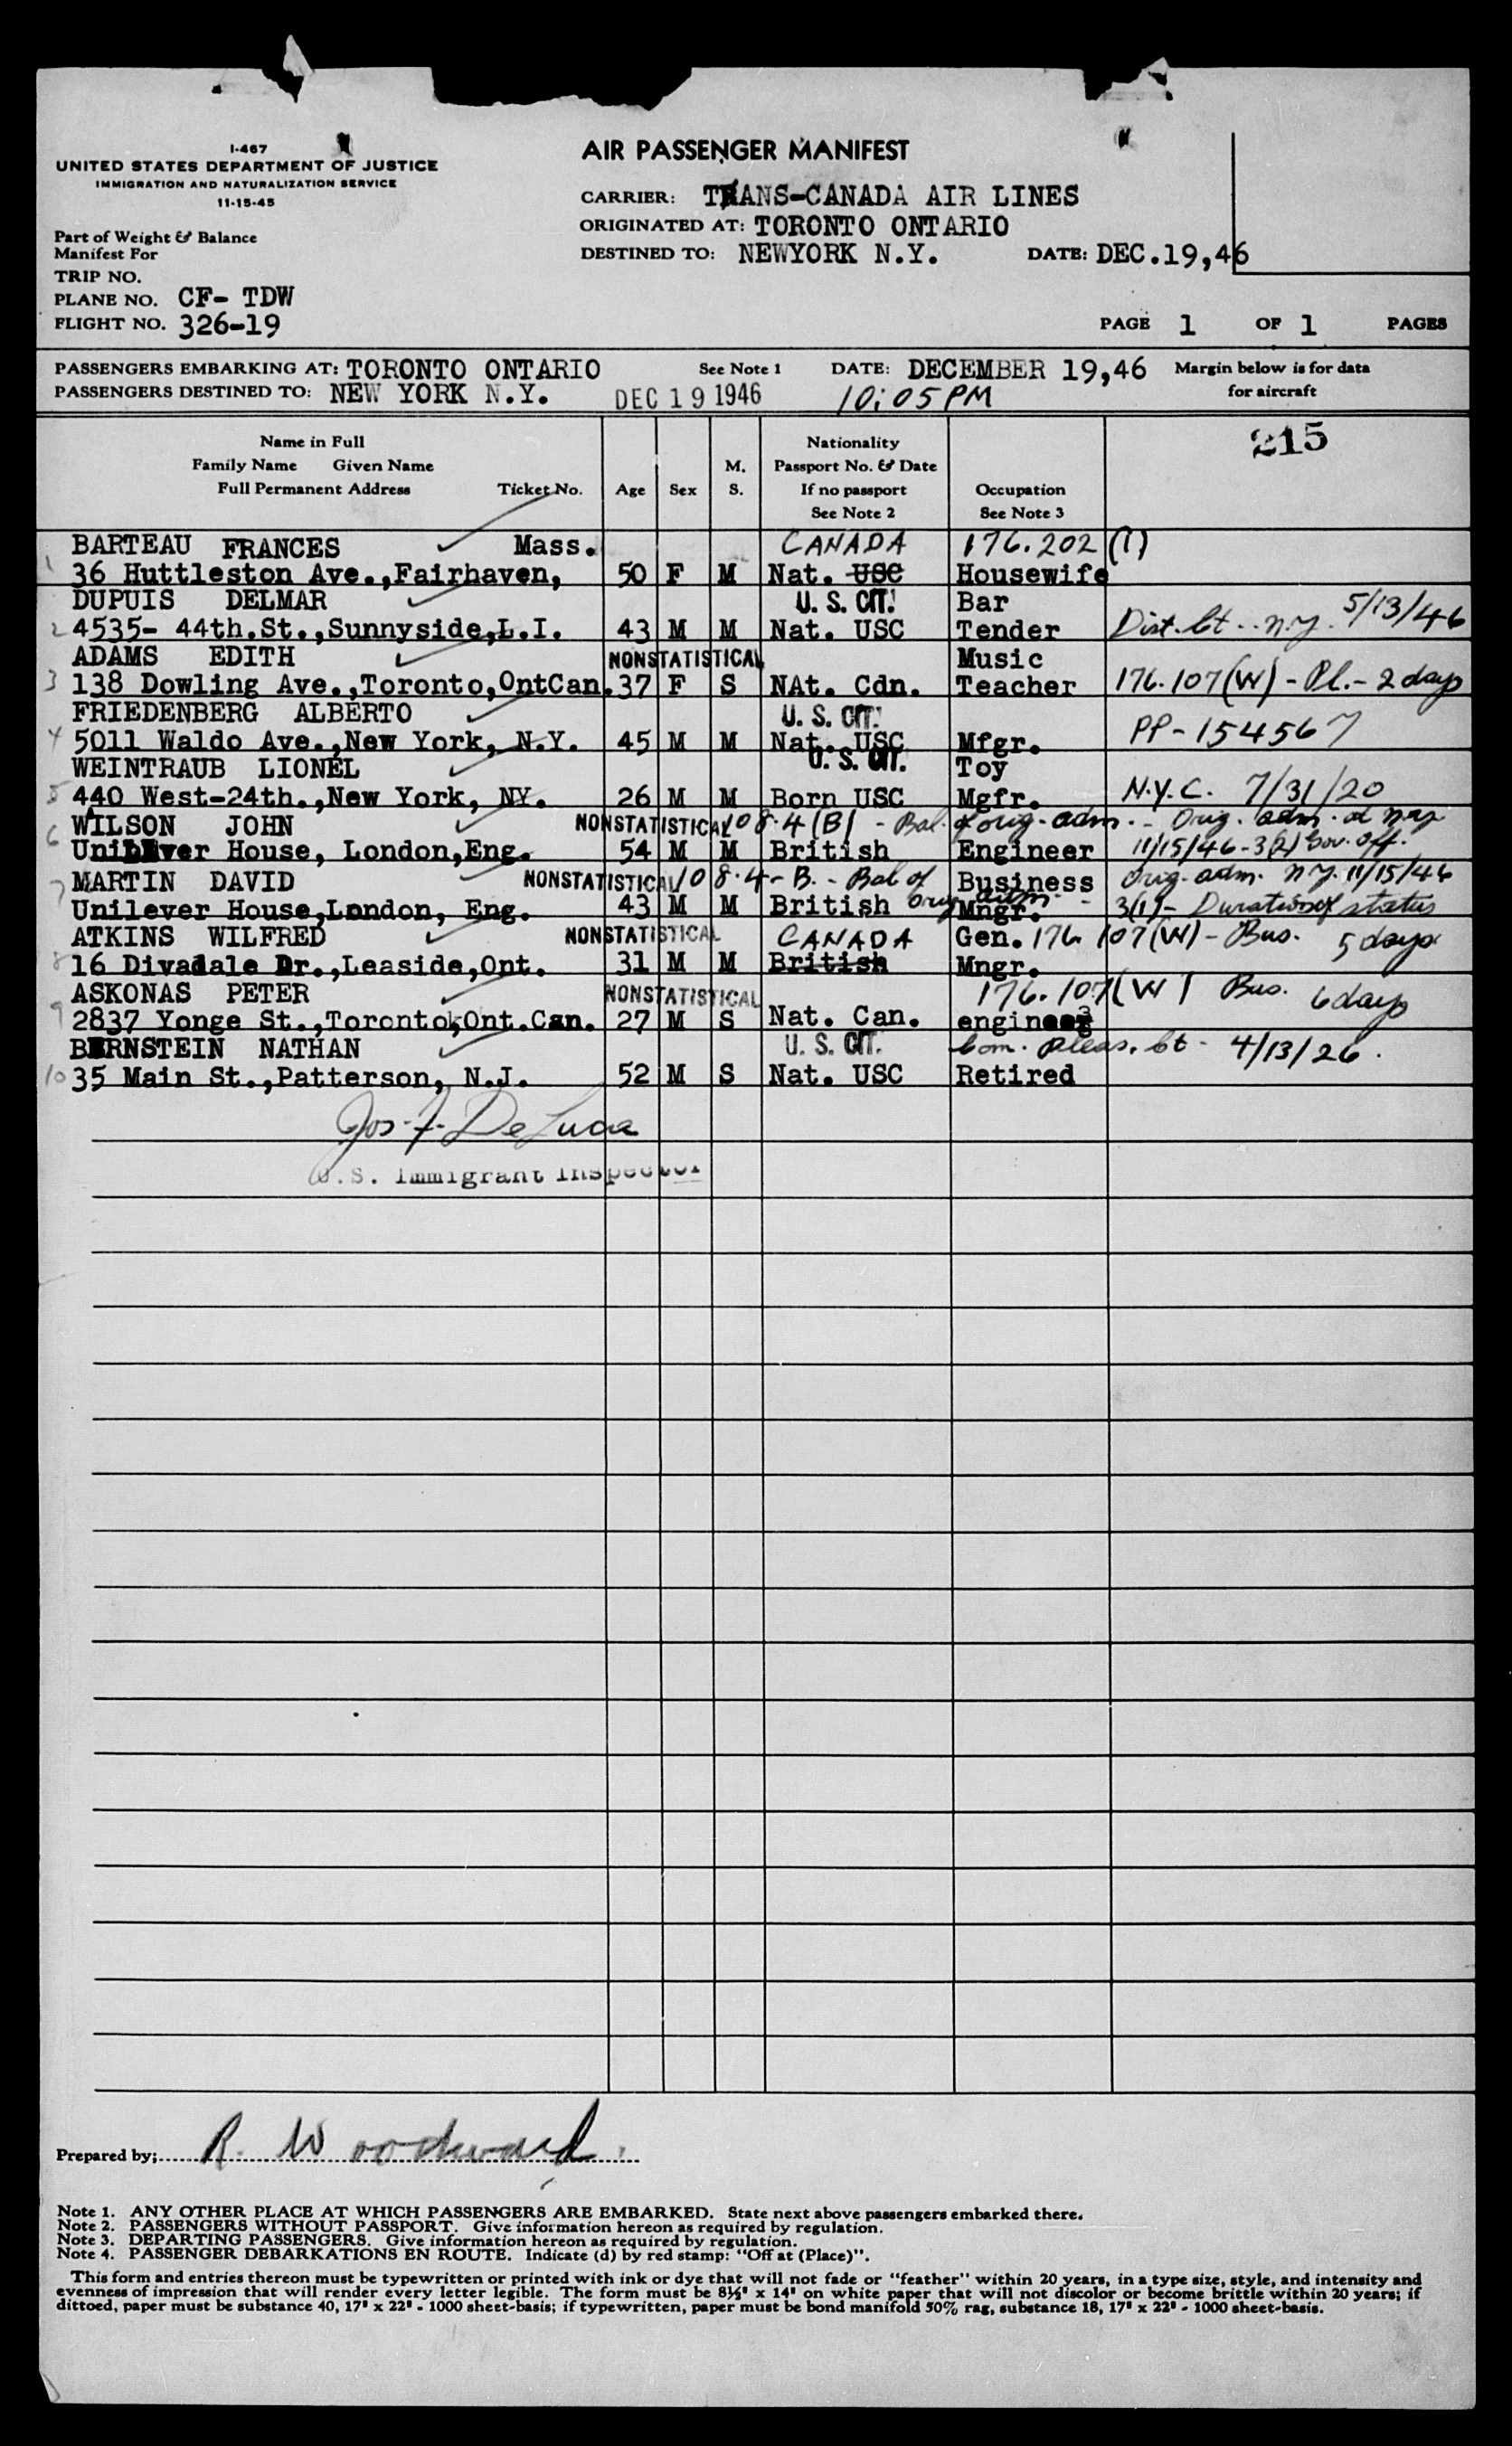 I-467
UNITED STATES DEPARTMENT OF JUSTICE
IMMIGRATION AND NATURALIZATION SERVICE
11-15-45
AIR PASSENGER MANIFEST
CARRIER: TRANS-CANADA AIR LINES
ORIGINATED AT: TORONTO ONTARIO
DESTINED TO: NEWYORK N.Y. DATE: DEC.19,46
Part of Weight & Balance
Manifest For
TRIP NO.
PLANE NO. CF- TDW
FLIGHT NO. 326-19
PAGE 1 OF 1 PAGES
PASSENGERS EMBARKING AT: TORONTO ONTARIO See Note 1 DATE: DECEMBER 19,46 Margin below is for data
PASSENGERS DESTINED TO: NEW YORK N.Y. DEC 19 1946 10:05 PM for aircraft
215
Name in Full Nationality
Family Name Given Name M. Passport No. & Date
Full Permanent Address Ticket No. Age Sex S. If no passport Occupation
See Note 2 See Note 3
BARTEAU FRANCES Mass. CANADA 176.202 (1)
1 36 Huttleston Ave.,Fairhaven, 50 F M Nat. USC Housewife
DUPUIS DELMAR U. S. CIT. Bar
2 4535- 44th.St.,Sunnyside,L.I. 43 M M Nat. USC Tender Dist. Ct. - N.Y. 5/13/46
ADAMS EDITH NONSTATISTICAL Music
3 138 Dowling Ave.,Toronto,OntCan. 37 F S NAt. Cdn. Teacher 176.107(W) - Pl. - 2 days
FRIEDENBERG ALBERTO U. S. CIT.
4 5011 Waldo Ave.,New York, N.Y. 45 M M Nat. USC Mfgr. PP-154567
WEINTRAUB LIONEL U. S. CIT. Toy
5 440 West-24th.,New York, NY. 26 M M Born USC Mgfr. N.Y.C. 7/31/20
WILSON JOHN NONSTATISTICAL 108.4(B) - Bal. of orig. adm. - Orig. adm. at N.Y.
6 Unilever House, London,Eng. 54 M M British Engineer 11/15/46-3(2) Gov. Off.
MARTIN DAVID NONSTATISTICAL 108.4-B. - Bal of orig adm. Business Orig. adm. N.Y. 11/15/46
7 Unilever House,London, Eng. 43 M M British Mngr. 3(1) - Duration of status
ATKINS WILFRED NONSTATISTICAL CANADA Gen. 176.107(W) - Bus. 5 days
8 16 Divadale Dr.,Leaside,Ont. 31 M M British Mngr.
ASKONAS PETER NONSTATISTICAL 176.107(W) Bus. 6 days
9 2837 Yonge St.,Toronto,Ont.Can. 27 M S Nat. Can. engineer
BERNSTEIN NATHAN U. S. CIT. Com. Pleas. Ct - 4/13/26.
10 35 Main St.,Patterson, N.J. 52 M S Nat. USC Retired
Jos. F. De Luca
U.S. Immigrant Inspector
Prepared by; R. Woodward.
Note 1. ANY OTHER PLACE AT WHICH PASSENGERS ARE EMBARKED. State next above passengers embarked there.
Note 2. PASSENGERS WITHOUT PASSPORT. Give information hereon as required by regulation.
Note 3. DEPARTING PASSENGERS. Give information hereon as required by regulation.
Note 4. PASSENGER DEBARKATIONS EN ROUTE. Indicate (d) by red stamp: "Off at (Place)".
This form and entries thereon must be typewritten or printed with ink or dye that will not fade or "feather" within 20 years, in a type size, style, and intensity and
evenness of impression that will render every letter legible. The form must be 8½" x 14" on white paper that will not discolor or become brittle within 20 years; if
dittoed, paper must be substance 40, 17" x 22" - 1000 sheet-basis; if typewritten, paper must be bond manifold 50% rag, substance 18, 17" x 22" - 1000 sheet-basis.